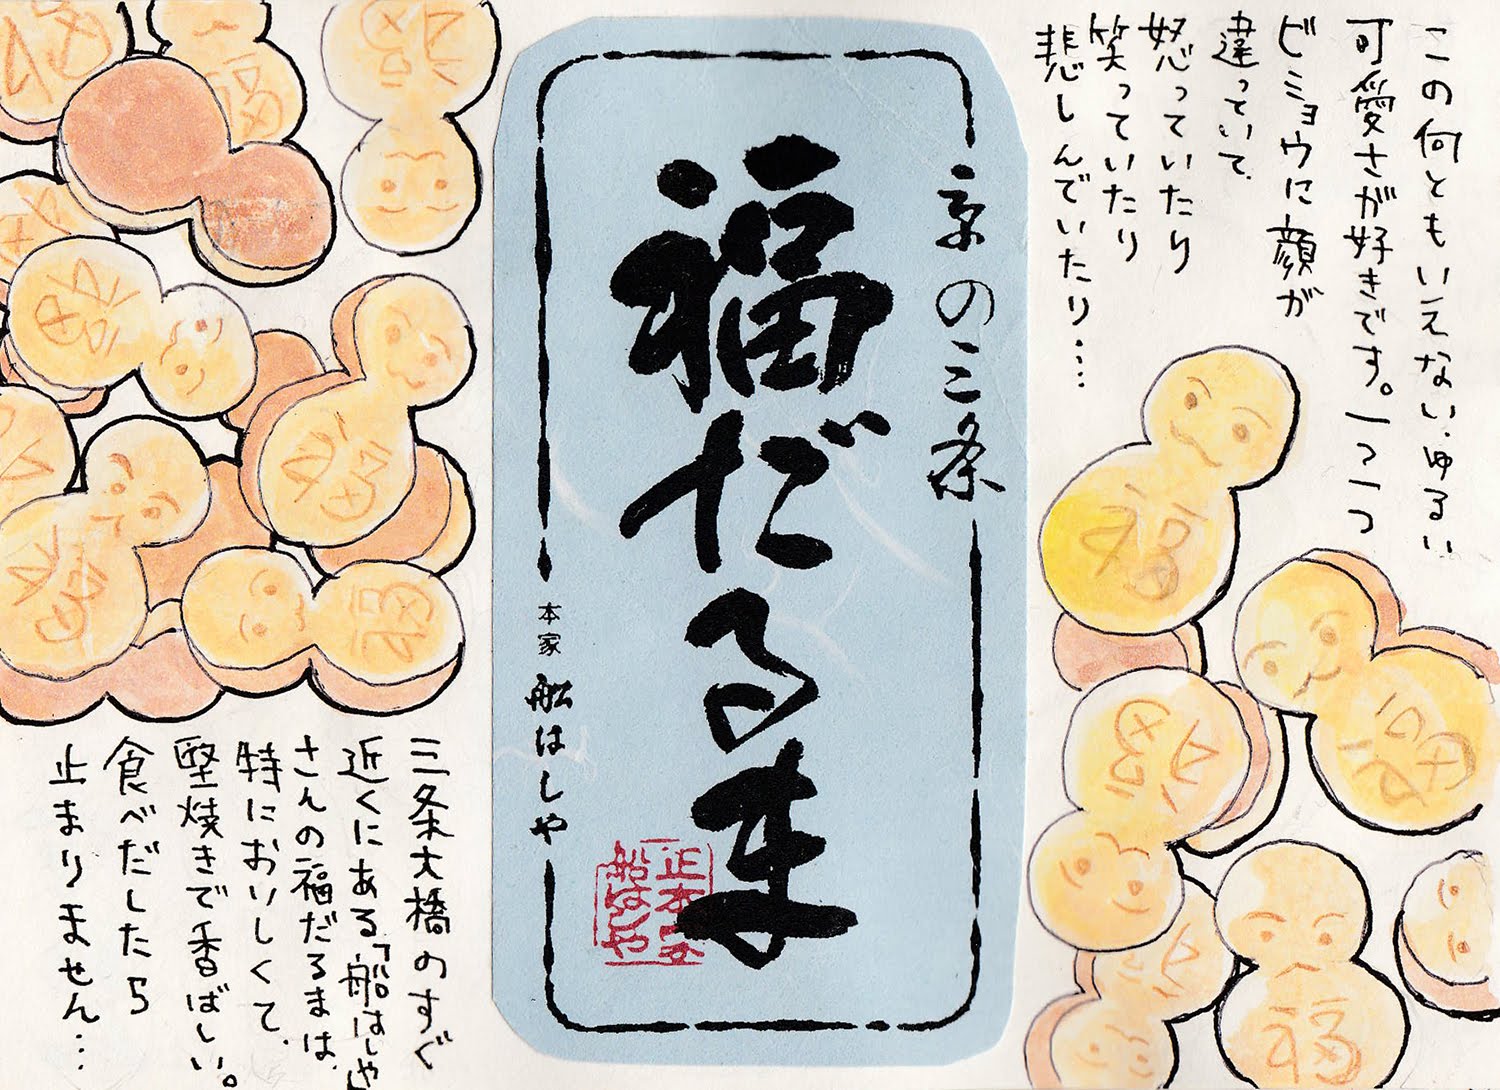 この何ともいえない、ゆるい
可愛さが好きです。一つ一つ
ビミョウに顔が
違っていて、
怒っていたり
笑っていたり
悲しんでいたり…
京の三条
福だるま
本家 船はしや
正本家
船はしや
三条大橋のすぐ
近くにある「船はしや」
さんの福だるまは、
特においしくて、
堅焼きで香ばしい。
食べだしたら
止まりません…
福
福
福
福
福
福
福
福
福
福
福